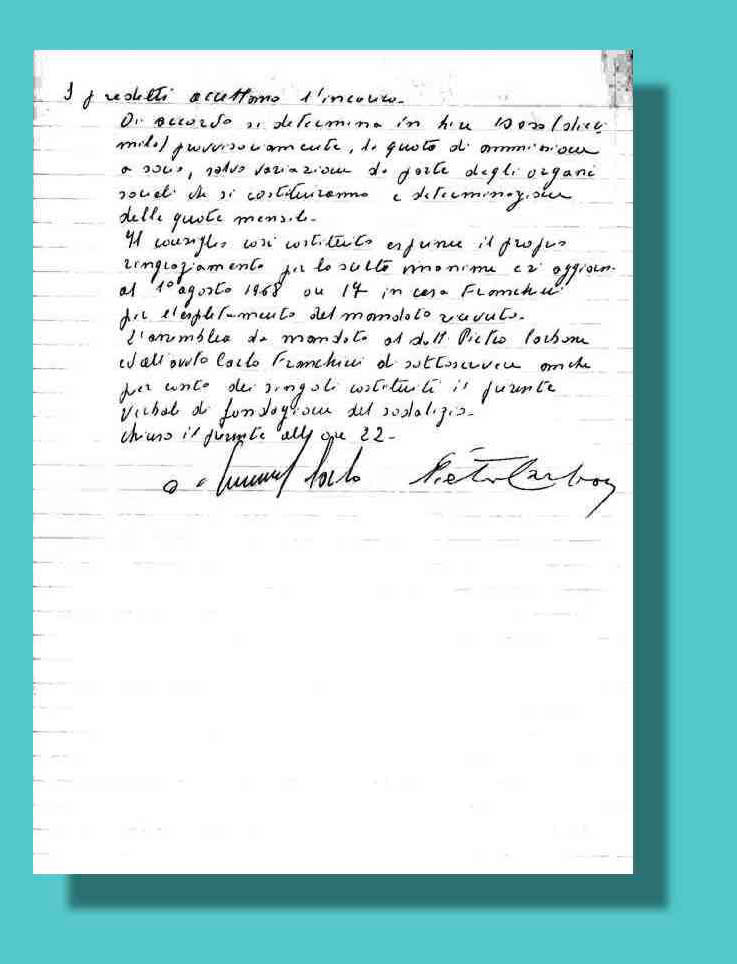 I predetti accettano l'incarico.
Di accordo si determina in lire 10.000 (dieci
mila) provvisoriamente, la quota di ammissione
a socio, salvo variazione da parte degli organi
sociali che si costituiranno e determinazione
delle quote mensili.
Il consiglio così costituito esprime il proprio
ringraziamento per la scelta unanime ed aggiorn.
al 1° agosto 1968 ore 17 in casa Franchini
per l'espletamento del mandato ricevuto.
L'assemblea da mandato al dott. Pietro Carbone
ed all'avv.to Carlo Franchini di sottoscrivere anche
per conto dei singoli costituiti il presente
verbale di fondazione del sodalizio.
Chiuso il presente alle ore 22-
Carlo Pietro Carbone